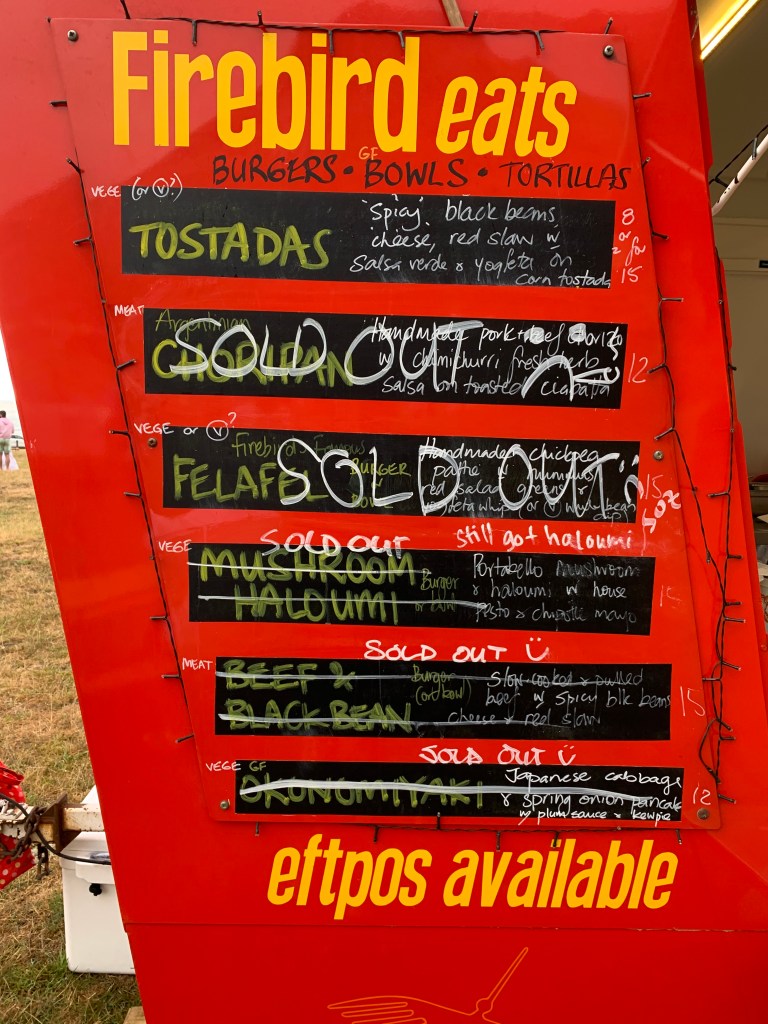 Firebird eats
GF
BURGERS • BOWLS • TORTILLAS
VEGE (or V?)
TOSTADAS
'Spicy' black beans
cheese, red slaw w
Salsa verde & yogleta on
corn tostada
8
or
2 for
15
MEAT
Argentinian
CHORIPAN
SOLD OUT
Handmade pork + beef chorizo
w chimichurri fresh herb
Salsa on toasted ciabatta
12
VEGE or V?
Firebird's Famous
FELAFEL
BURGER
BOWL
SOLD OUT
Handmade chickpea
w hummus
red salad greens
15
SOLD OUT
still got haloumi
VEGE
MUSHROOM
HALOUMI
Burger
Portabello mushroom
& haloumi w house
pesto & chipotle mayo
SOLD OUT
MEAT
BEEF &
BLACK BEAN
Burger
(or bowl)
Slow cooked & pulled
beef w spicy blk beans
cheese & red slaw
15
SOLD OUT
VEGE GF
OKONOMIYAKI
Japanese cabbage
& spring onion pancake
w plum sauce & kewpie
12
eftpos available